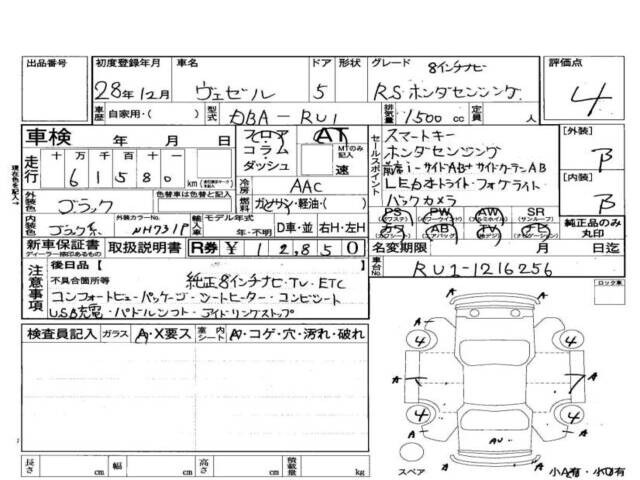 出品番号
初度登録年月 車名 ドア 形状 グレード 8インチナビ 評価点
28年12月 ヴェゼル 5 RS・ホンダセンシング 4
車歴 自家用・( ) 型式 DBA-RU1 排気量 1500 cc 定員 人
車検 年 月 日 フロア AT
コラム MTのみ記入
ダッシュ 速
走行 十 万 千 百 十
6 1 5 8 0 km
冷房 AAC
燃料 ガソリン・軽油・( )
セールスポイント
スマートキー
ホンダセンシング
前席i-サイドAB+サイドカーテンAB
LEDオートライト・フォグライト
バックカメラ
PS PW AW SR
AB TV
[外装] B
[内装] B
純正品のみ丸印
外装色 ブラック 色替車は色替と記入
内装色 ブラック系 外装カラーNo. NH731P 輸入車 モデル年式 年・不明 D車・並 右H・左H
新車保証書 取扱説明書 R券 ¥ 1 2,8 5 0
ディーラー捺印あるもの
名変期限 月 日迄
車台No. RU1-1216256
注意事項
後日品[ ]
不具合箇所等 純正8インチナビ・TV・ETC
コンフォートビューパッケージ・シートヒーター・コンビシート
USB充電・パドルシフト・アイドリングストップ
検査員記入 ガラス A・X要ス 室内シート A・コゲ・穴・汚れ・破れ
ロック車
A A
4 4
A A A
4 4
A A
AU
A A
スペア 小A有・小U有
長さ cm 幅 cm 高さ cm 積載量 kg
現在色を記入